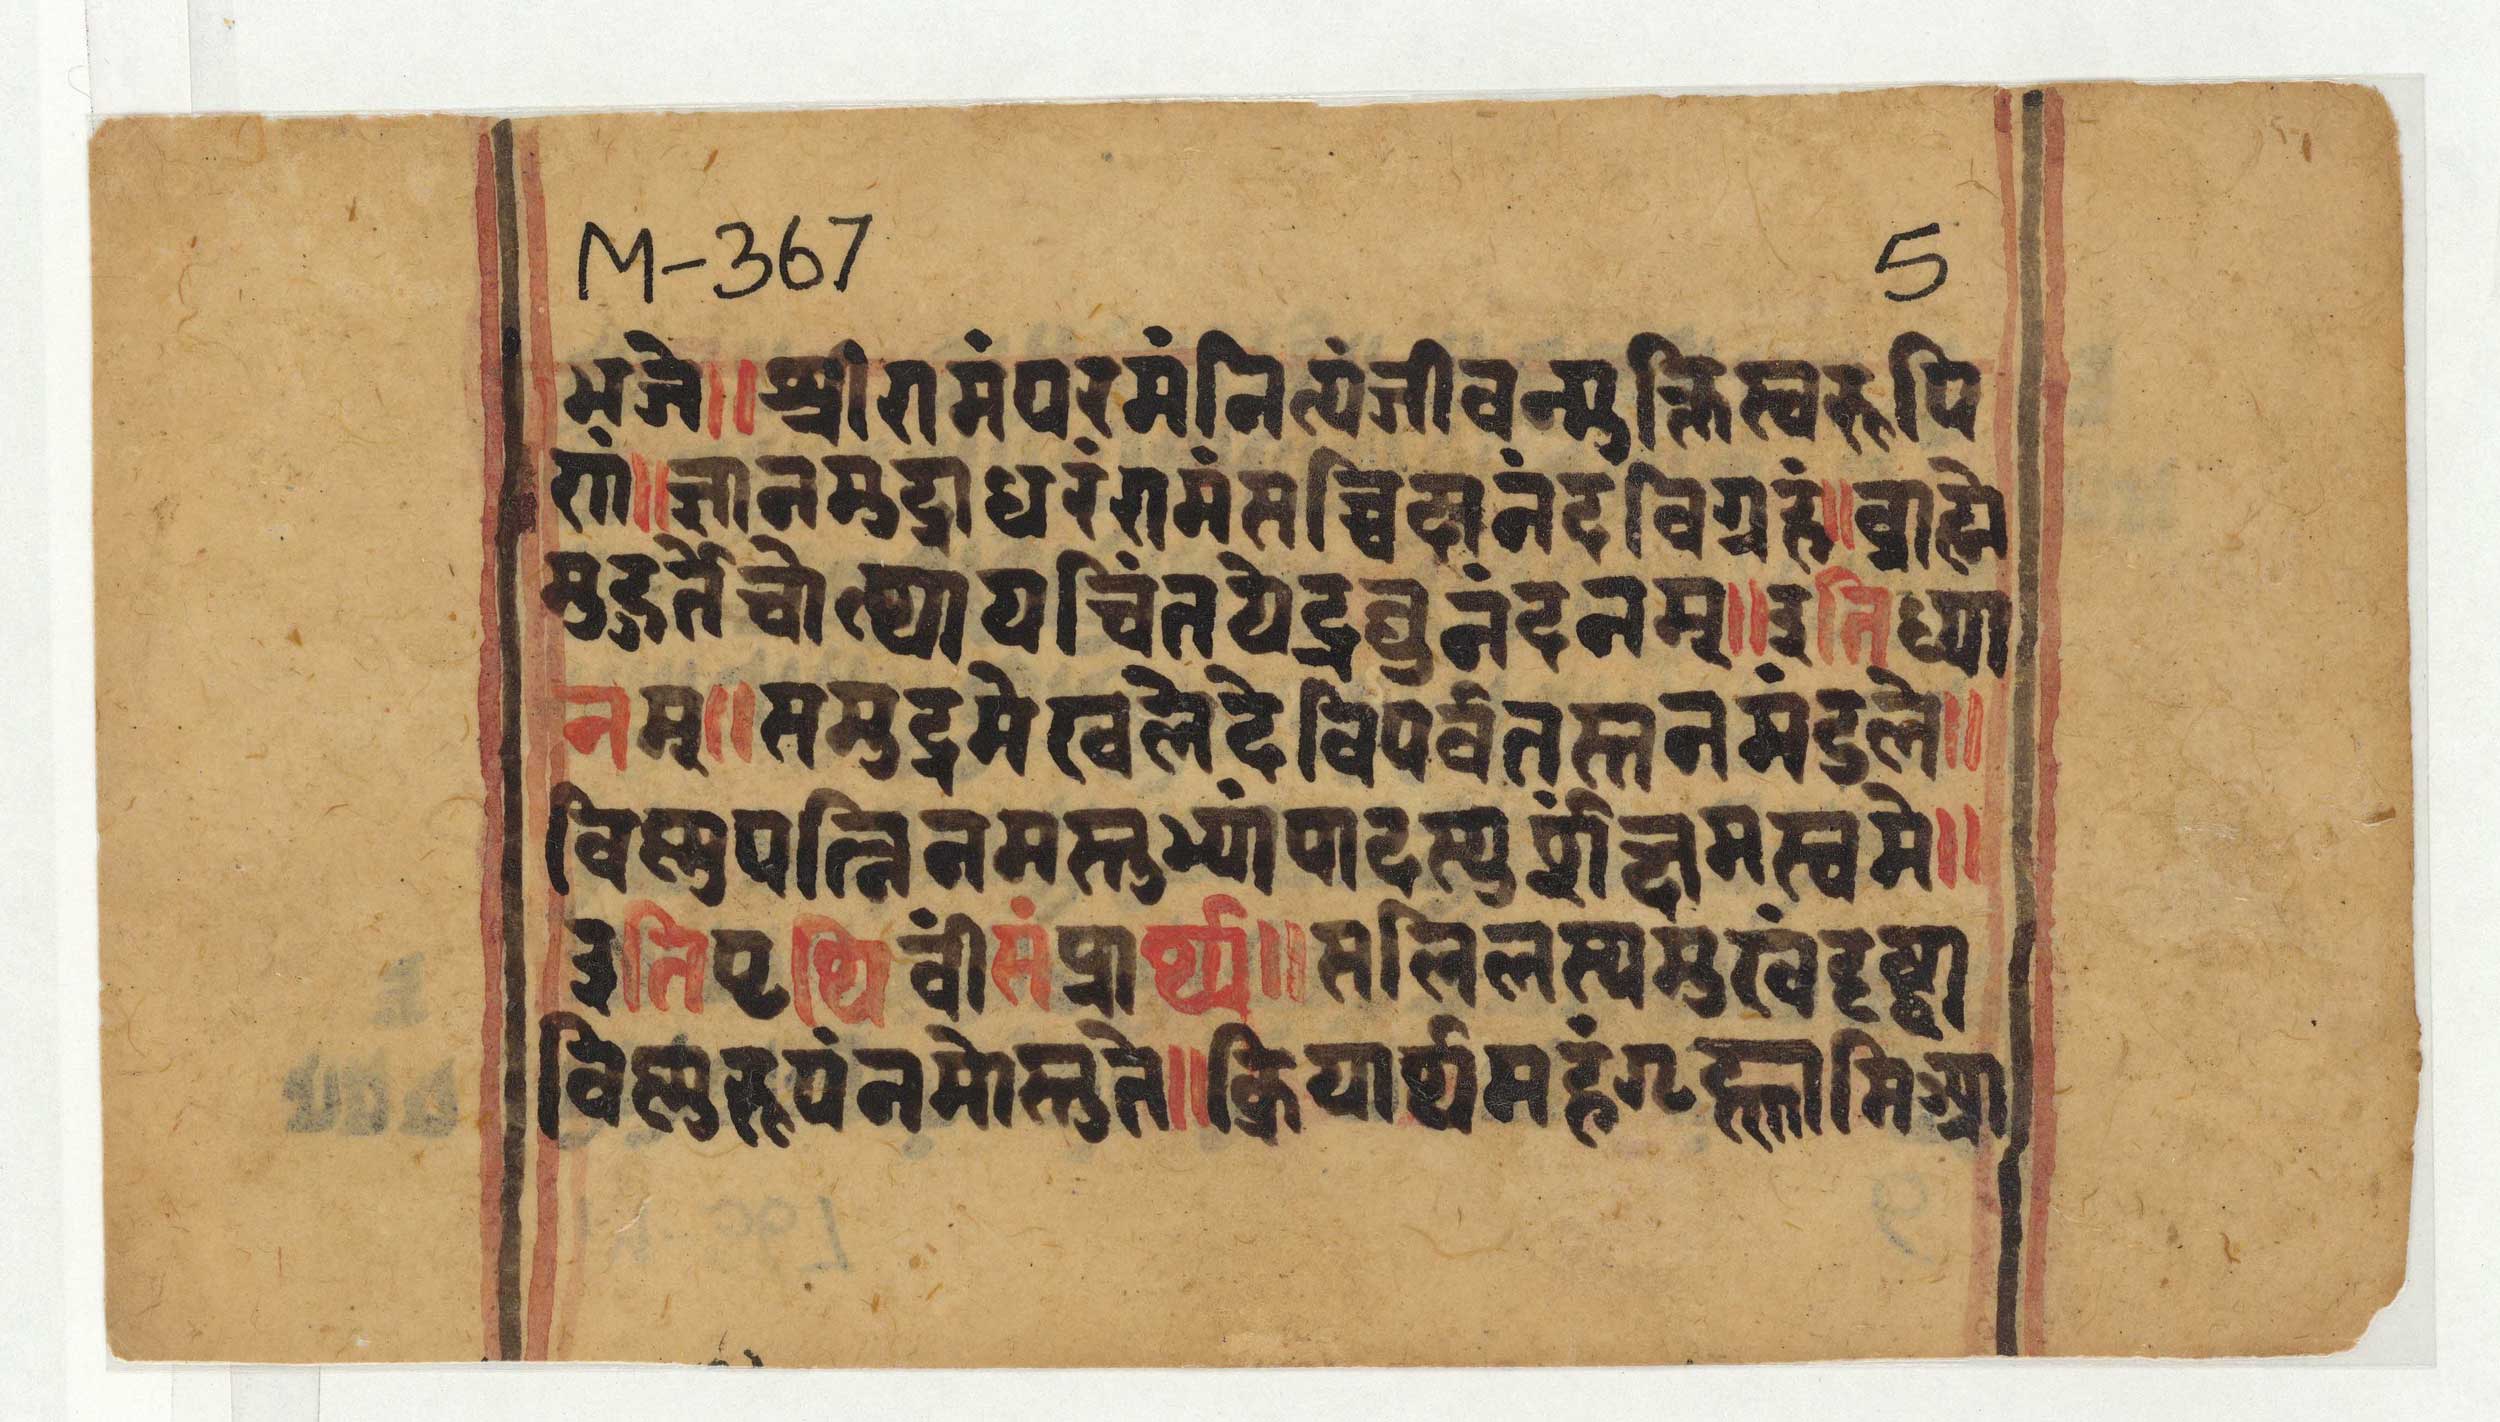 M-367 5
भजे॥श्रीरामंपरमंनित्यंजीवन्मुक्तिस्वरूपि
णं॥ज्ञानमुद्राधरंरामंसच्चिदानंदविग्रहं॥ब्राह्मे
मुहुर्तेचोत्थायचिंतयेद्रघुनंदनम्॥इतिध्या
नम्॥समुद्रमेखलेदेविपर्वतस्तनमंडले॥
विष्णुपत्निनमस्तुभ्यांपादस्पुर्शंक्षमस्वमे॥
इतिपृथिवींसंप्रार्थ्य॥सलिलस्यमुखंदृष्ट्वा
विष्णुरूपंनमोस्तुते॥क्रियार्थमहंगृह्णामिआ